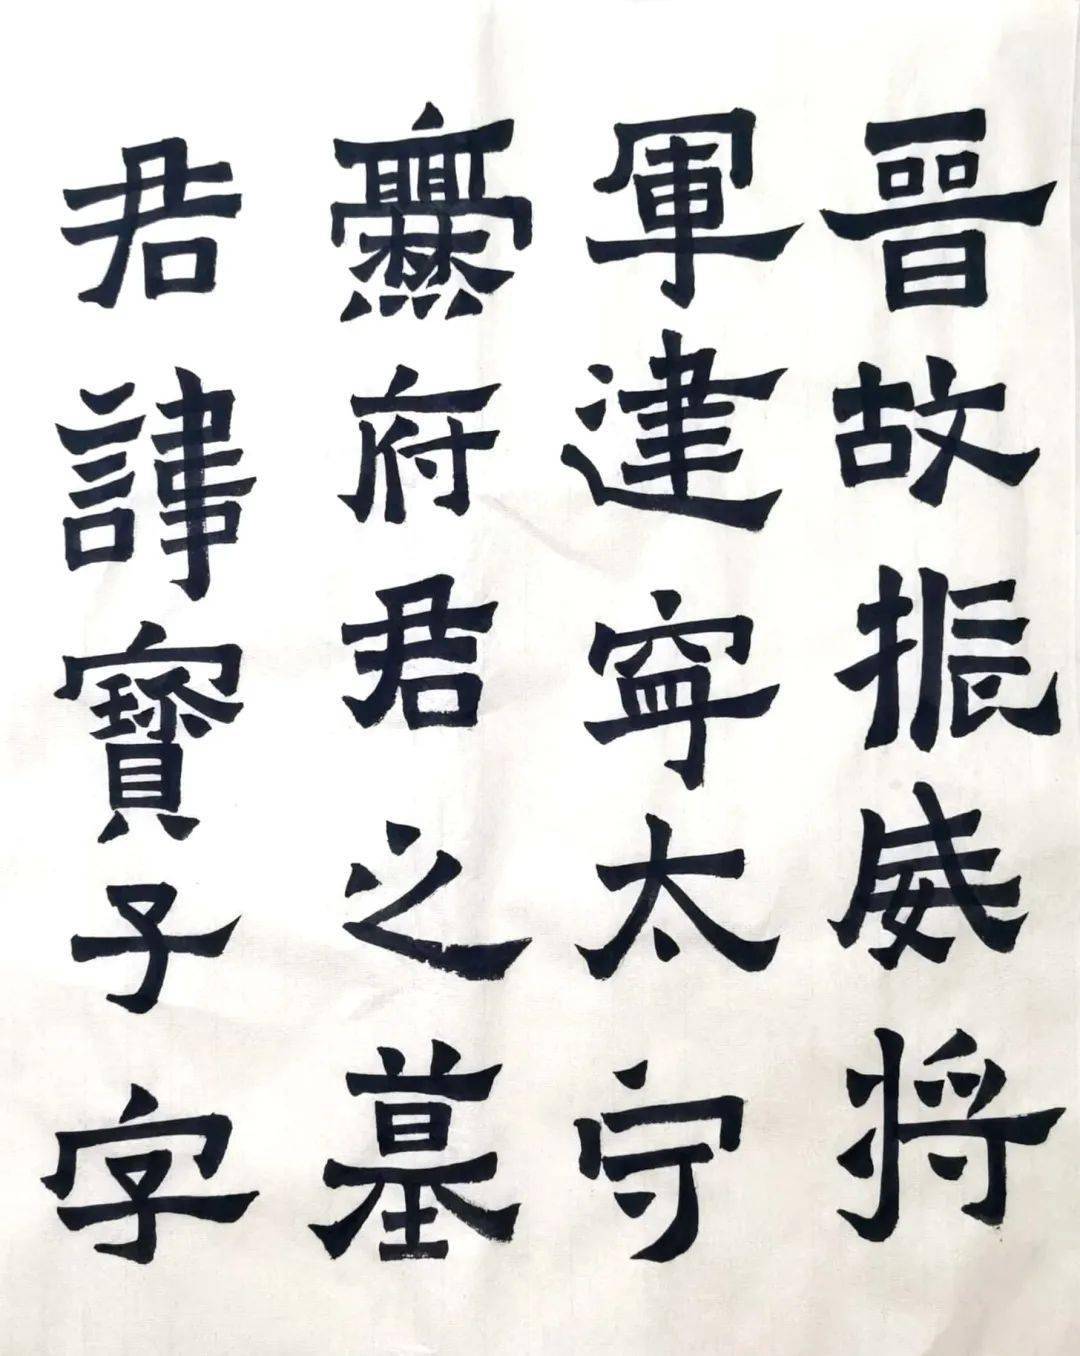 晉故振威將
軍建寧太守
爨府君之墓
君諱寶子字